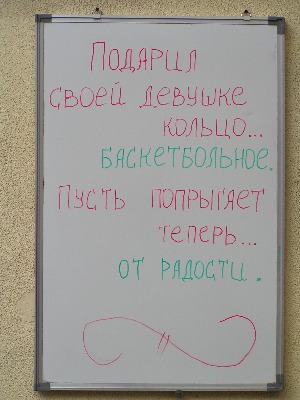 ПОДАРИЛ
СВОЕЙ ДЕВУШКЕ
КОЛЬЦО...
БАСКЕТБОЛЬНОЕ.
ПУСТЬ ПОПРЫГАЕТ
ТЕПЕРЬ...
ОТ РАДОСТИ.